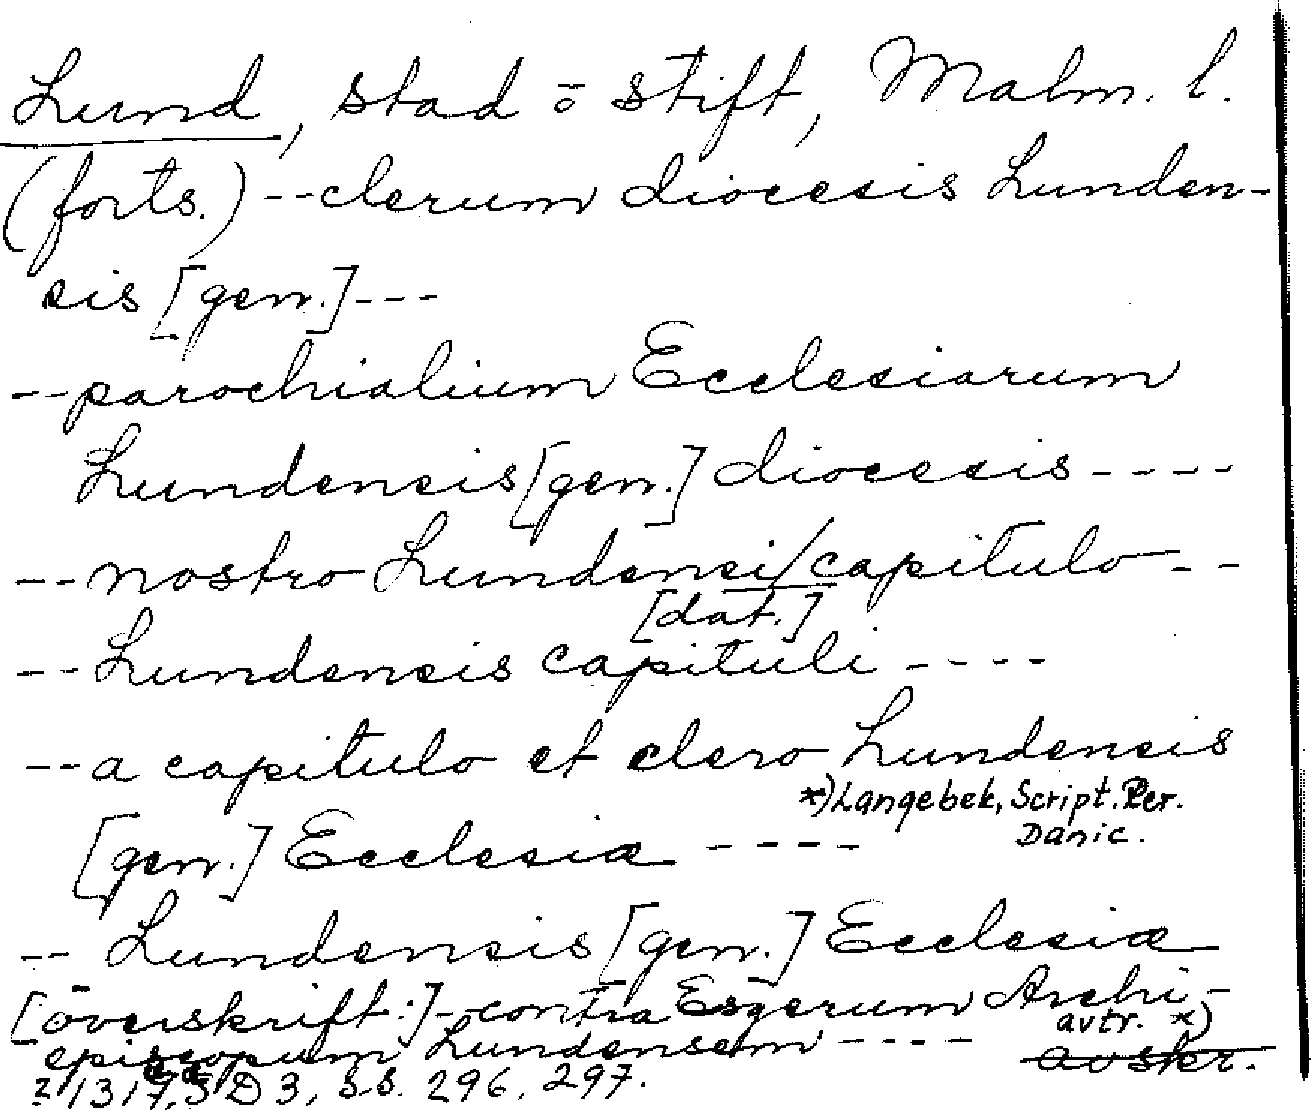 Lund, stad ō stift, Malm. l.
(forts.) -- clerum diocesis Lunden-
sis [gen.] ---
-- parochialium Ecclesiarum
Lundensis [gen.] diocesis ----
-- nostro Lundensi/capitulo --
[dat.]
-- Lundensis capituli ----
-- a capitulo et clero Lundensis
*) Langebek, Script. Rer.
Danic.
[gen.] Ecclesiæ ----
-- Lundensis [gen.] Ecclesiæ
[överskrift:] -contra Esgerum Archi-
avtr. *)
episcopum Lundensem ----
avskr.
? 1317, SD 3, s.s. 296, 297.